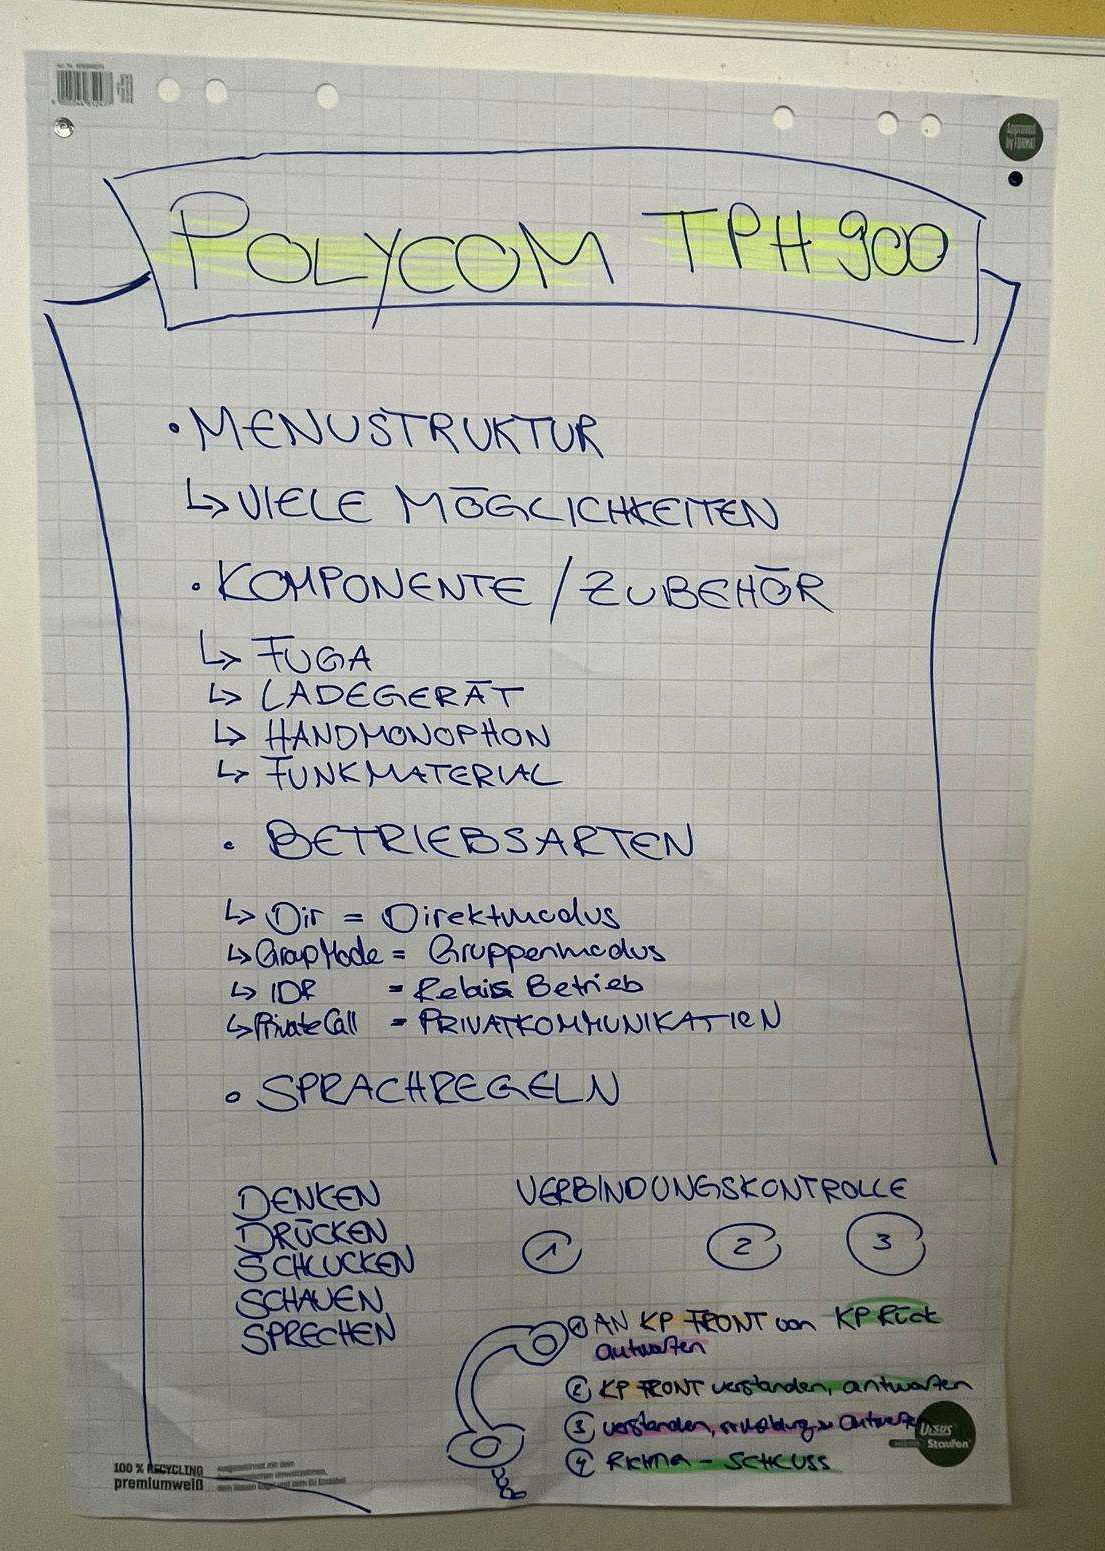 Approved by FORMAT
POLYCOM TPH 900
• MENUSTRUKTUR
↳ VIELE MÖGLICHKEITEN
• KOMPONENTE / ZUBEHÖR
↳ FUGA
↳ LADEGERÄT
↳ HANDMONOPHON
↳ FUNKMATERIAL
• BETRIEBSARTEN
↳ Dir = Direktmodus
↳ GroupMode = Gruppenmodus
↳ IDR = Relais Betrieb
↳ PrivateCall = PRIVATKOMMUNIKATION
• SPRACHREGELN
DENKEN
DRÜCKEN
SCHLUCKEN
SCHAUEN
SPRECHEN
VERBINDUNGSKONTROLLE
1 2 3
① AN KP FRONT von KP Rück
antworten
② KP FRONT verstanden, antworten
③ verstanden, antworten
④ Richtig - SCHLUSS
URSUS
Staufen
100 % RECYCLING
premiumweiß